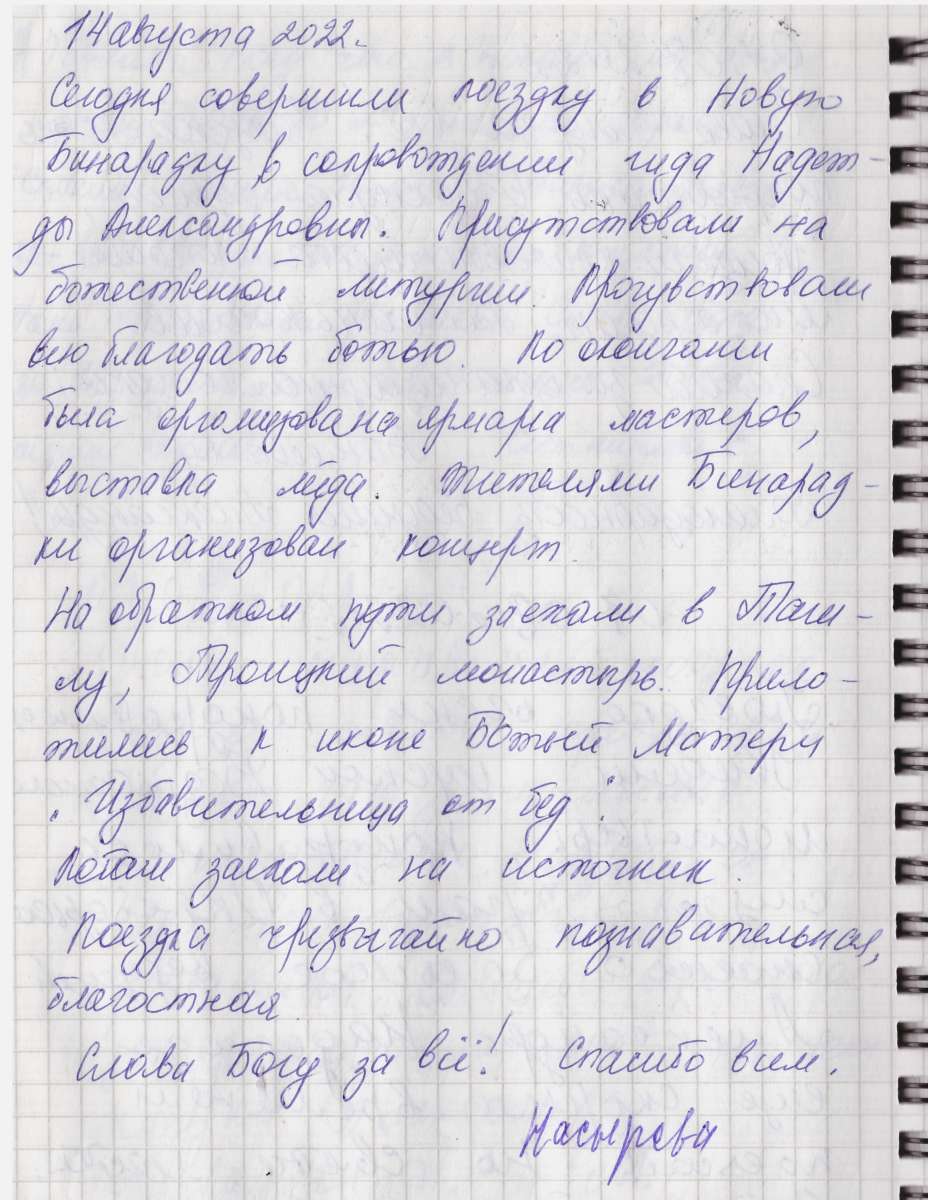 14 августа 2022.
Сегодня совершили поездку в Новую
Бинарадку в сопровождении гида Надеж-
ды Александровны. Присутствовали на
божественной литургии. Прочувствовали
всю благодать божью. По окончании
была организована ярмарка мастеров,
выставка мёда. Жителями Бинарад-
ки организован концерт.
На обратном пути заехали в Таш-
лу, Троицкий монастырь. Прило-
жились к иконе Божьей Матери
"Избавительница от бед".
Потом заехали на источник.
Поездка чрезвычайно познавательная,
благостная
Слава Богу за всё! Спасибо всем.
Насырова